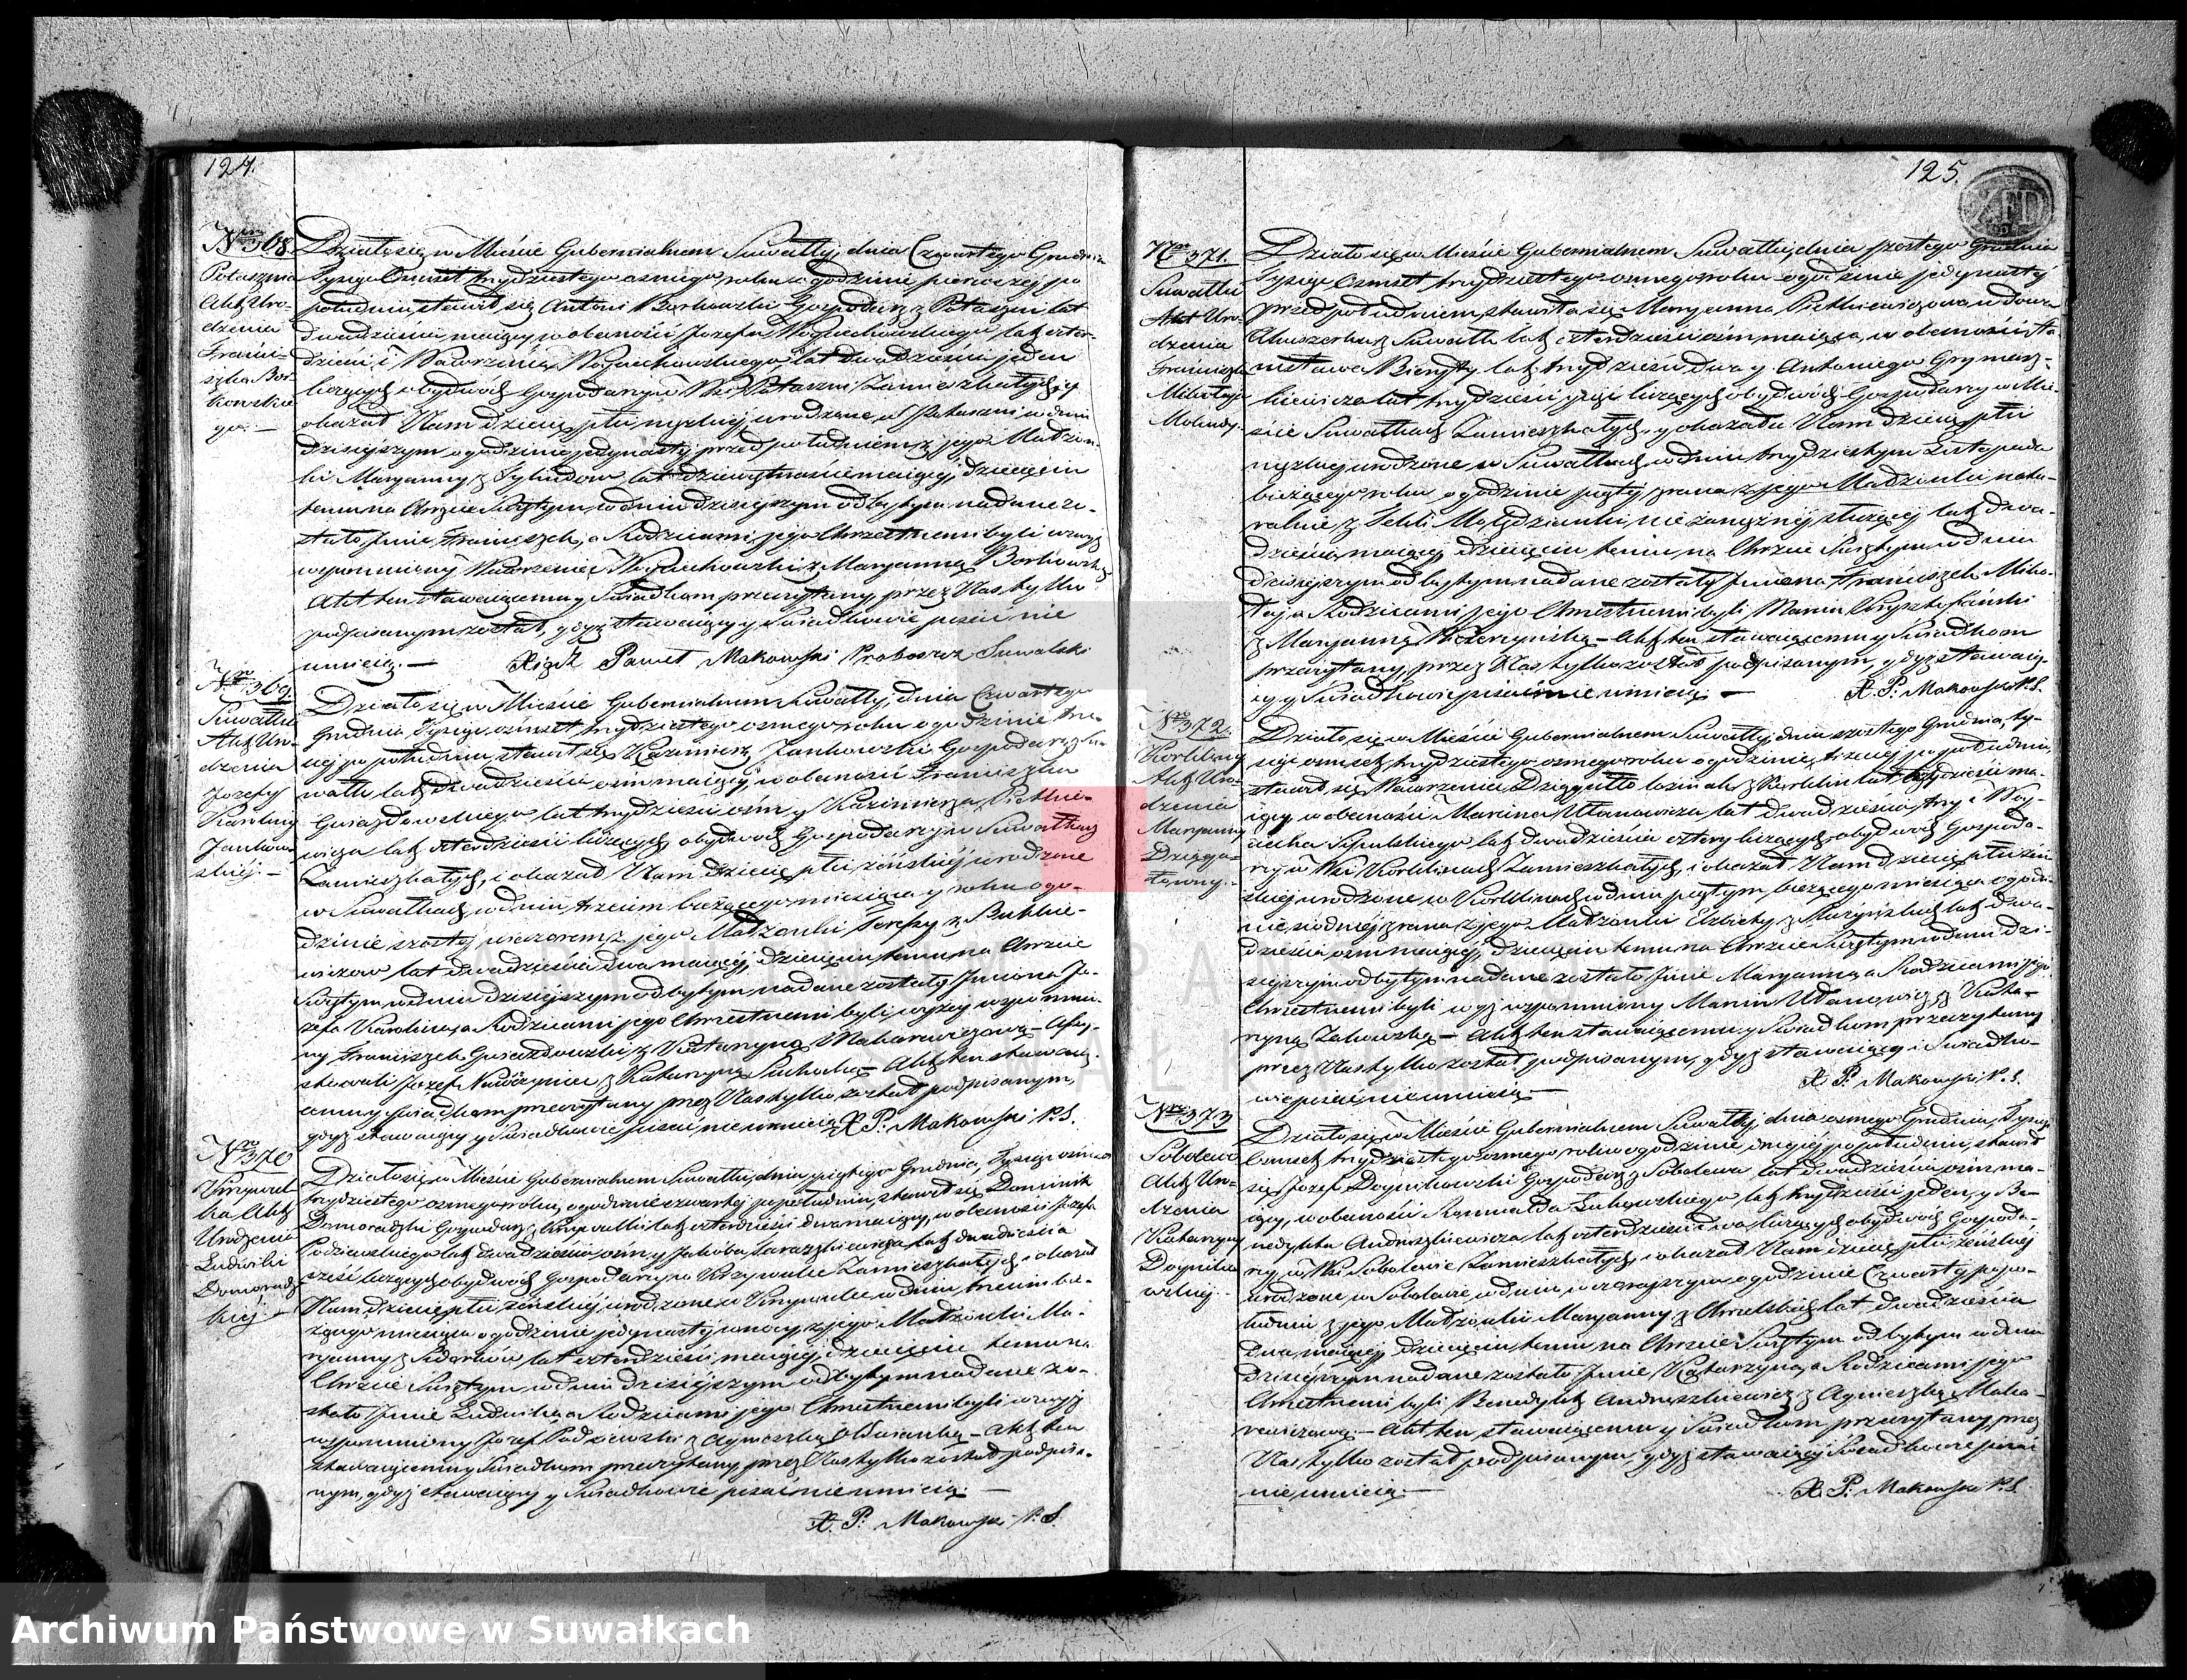 124.
Nro 368.
Potasznia
Akt Uro-
dzenia
Franci-
szka Bor-
kowskie
go. —
Działo się w Mieście Gubernialnem Suwałki, dnia Czwartego Grudnia
Tysiąc Ośmset trzydziestego osmego roku o godzinie pierwszej po
południu, stawił się Antoni Borkowski Gospodarz z Potaszni lat
dwadzieścia maiący w obecności Jozefa Woyciechowskiego, lat czter-
dzieści i Wawrzeńca Woyciechowskiego lat dwadzieścia jeden
liczących obydwóch Gospodarzy w Wsi Potaszni Zamieszkałych, i
okazał Nam dziecię płci męzkiej, urodzone w Potaszni w dniu
dzisiejszym o godzinie jedynastej przed południem z jego Małżon-
ki Maryanny z lat dziewiętnaście maiącej, dziecięciu
temu na Chrzcie Świętym w dniu dzisiejszym odbytym nadane zo-
stało Jmie Franciszek, a Rodzicami jego Chrzestnemi byli wzwyż
wspomniony Wawrzeniec Woyciechowski z Maryanną Borkowską
Akt ten stawaiącemu y Świadkom przeczytany przez Nas tylko
podpisanym został, gdyż stawaiący y Świadkowie pisać nie
umieią. — Xiądz Paweł Makowski Proboszcz Suwalski
Nro 369.
Suwałki
Akt Uro-
dzenia
Jozefy
Karoliny
Jankow-
skiéj. —
Działo się w Mieście Gubernialnem Suwałki, dnia Czwartego
Grudnia Tysiąc ośmset trzydziestego osmego roku o godzinie trze-
ciej po południu, stawił się Kazimierz Jankowski Gospodarz z Su-
wałk lat dwadzieścia ośm maiący, w obecności Franciszka
Gwiazdowskiego lat trzydzieści ośm y Kazimierza Pietkie-
wicza lat czterdzieści liczących obydwóch Gospodarzy w Suwałkach
Zamieszkałych, i okazał Nam dziecię płci żeńskiéj urodzone
w Suwałkach w dniu trzecim bieżącego miesiąca y roku o go-
dzinie szóstej wieczorem z jego Małżonki Teresy z Butkie-
wiczow lat dwadzieścia dwa maiącéj, dziecięciu temu na Chrzcie
Świętym w dniu dzisiejszym odbytym nadane zostały Jmiona Jo-
zefa Karolina, a Rodzicami jego Chrzestnemi byli wyżey wspomnio-
ny Franciszek Gwiazdowski z Katarzyną Makarewiczową — Assy-
stowali Jozef Nawrzynic z Katarzyną Suchocką — Akt ten stawaią-
cemu y Świadkom przeczytany przez Nas tylko został podpisanym,
gdyż stawaiący y Świadkowie pisać nie umieią. X P. Makowski P.S.
Nro 370
Krzywul-
ka Akt
Urodzenia
Ludwiki
Domoradz-
kiéj —
Działo się w Mieście Gubernialnem Suwałki, dnia piątego Grudnia, Tysiąc ośmset
trzydziestego osmego roku, o godzinie czwartej po południu, stawił się Dominik
Domoradzki Gospodarz z Krzywulki lat czterdzieści dwa maiący, w obecności Jozefa
Podziewskiego lat dwadzieścia ośm y Jakóba Taraszkiewicza lat dwadzieścia
sześć liczących obydwóch Gospodarzy w Krzywulce Zamieszkałych, i okazał
Nam, dziecię płci żeńskiéj, urodzone w Krzywulce w dniu trzecim bie-
żącego miesiąca o godzinie jedynastéj w nocy z jego Małżonki Ma-
ryanny z lat czterdzieści maiącéj, dziecięciu temu na
Chrzcie Świętym w dniu dzisiejszym odbytym nadane zo-
stało Jmie Ludwika, a Rodzicami jego Chrzestnemi byli wzwyż
wspomniony Jozef Podziewski z Agnieszką — Akt ten
stawaiącemu y Świadkom przeczytany przez Nas tylko został podpisa-
nym, gdyż stawaiący y Świadkowie pisać nie umieią. —
X. P. Makowski P.S.
125.
Nro 371.
Suwałki
Akt Uro-
dzenia
Franciszka
Mikołaja
Molendy.
Działo się w Mieście Gubernialnem Suwałki, dnia szóstego Grudnia
Tysiąc Ośmset trzydziestego osmego roku o godzinie jedynastéj
przed południem, stawiła się Maryanna Pietkiewiczowa wdowa
Akuszerka z Suwałk lat czterdzieści ośm maiąca, w obecności Sta-
nisława lat trzydzieści dwa y Antoniego Grymasz-
kiewicza lat trzydzieści pięć liczących obydwóch Gospodarzy w Mie-
ście Suwałkach Zamieszkałych, y okazała Nam dziecię płci
męzkiej urodzone w Suwałkach w dniu trzydziestym Listopada
bieżącego roku o godzinie piątéj zrana z jego
 nie zamężnéj służącéj lat dwa-
dzieścia maiącéj, dziecięciu temu na Chrzcie Świętym w dniu
dzisiejszym odbytym nadane zostały Jmiona Franciszek Miko-
łaj, a Rodzicami jego Chrzestnemi byli Marcin Krysztofiński
z Maryanną — Akt ten stawaiącemu y Świadkom
przeczytany, przez Nas tylko został podpisanym, gdyż stawaią-
cy y Świadkowie pisać nie umieią. — X. P. Makowski P.S.
Nro 372.
Korkliny
Akt Uro-
dzenia
Maryanny
Dziegie-
łowny.
Działo się w Mieście Gubernialnem Suwałki, dnia szóstego Grudnia, ty-
siąc ośmset trzydziestego osmego roku o godzinie trzeciej po południu,
stawił się Wawrzeniec z Korklin lat trzydzieści ma-
iący, w obecności Marcina Ułanowicza lat dwadzieścia trzy i Woy-
ciecha Sipulskiego lat dwadzieścia cztery liczących obydwóch Gospoda-
rzy w Wsi Korklinach Zamieszkałych, i okazał Nam dziecię płci żeń-
skiej urodzone w Korklinach w dniu piątym bieżącego miesiąca o godzi-
nie siódméj zrana z jego Małżonki Elżbiety z lat dwa-
dzieścia ośm maiącéj, dziecięciu temu na Chrzcie Świętym w dniu dzi-
siejszym odbytym nadane zostało Jmie Maryanna, a Rodzicami jego
Chrzestnemi byli wyż wspomniony Marcin Ułanowicz z Kata-
rzyną — Akt ten stawaiącemu y Świadkom przeczytany
przez Nas tylko został podpisanym, gdyż stawaiący i Świadko-
wie pisać nie umieią. — X. P. Makowski P.S.
Nro 373
Sobolewo
Akt Uro-
dzenia
Katarzyny
Działo się w Mieście Gubernialnem Suwałki, dnia osmego Grudnia, Tysiąc
Ośmset trzydziestego osmego roku o godzinie drugiéj po południu, stawił
się Jozef Gospodarz z Sobolewa lat dwadzieścia ośm ma-
iący, w obecności Romualda lat trzydzieści jeden, y Be-
nedykta Andruszkiewicza lat czterdzieści dwa liczących obydwóch Gospoda-
rzy w Wsi Sobolewie Zamieszkałych, i okazał Nam dziecię płci żeńskiéj
urodzone w Sobolewie w dniu wczorajszym o godzinie Czwartéj popo-
łudniu z jego Małżonki Maryanny z lat dwadzieścia
dwa maiącéj, dziecięciu temu na Chrzcie Świętym odbytym w dniu
dzisiejszym nadane zostało Jmie Katarzyna, a Rodzicami jego
Chrzestnemi byli Benedykt Andruszkiewicz z Agnieszką Maka-
rewiczową. — Akt ten stawaiącemu y Świadkom przeczytany, przez
Nas tylko został podpisanym gdyż stawaiący i Świadkowie pisać
nie umieią. — X. P. Makowski P.S.
Archiwum Państwowe w Suwałkach